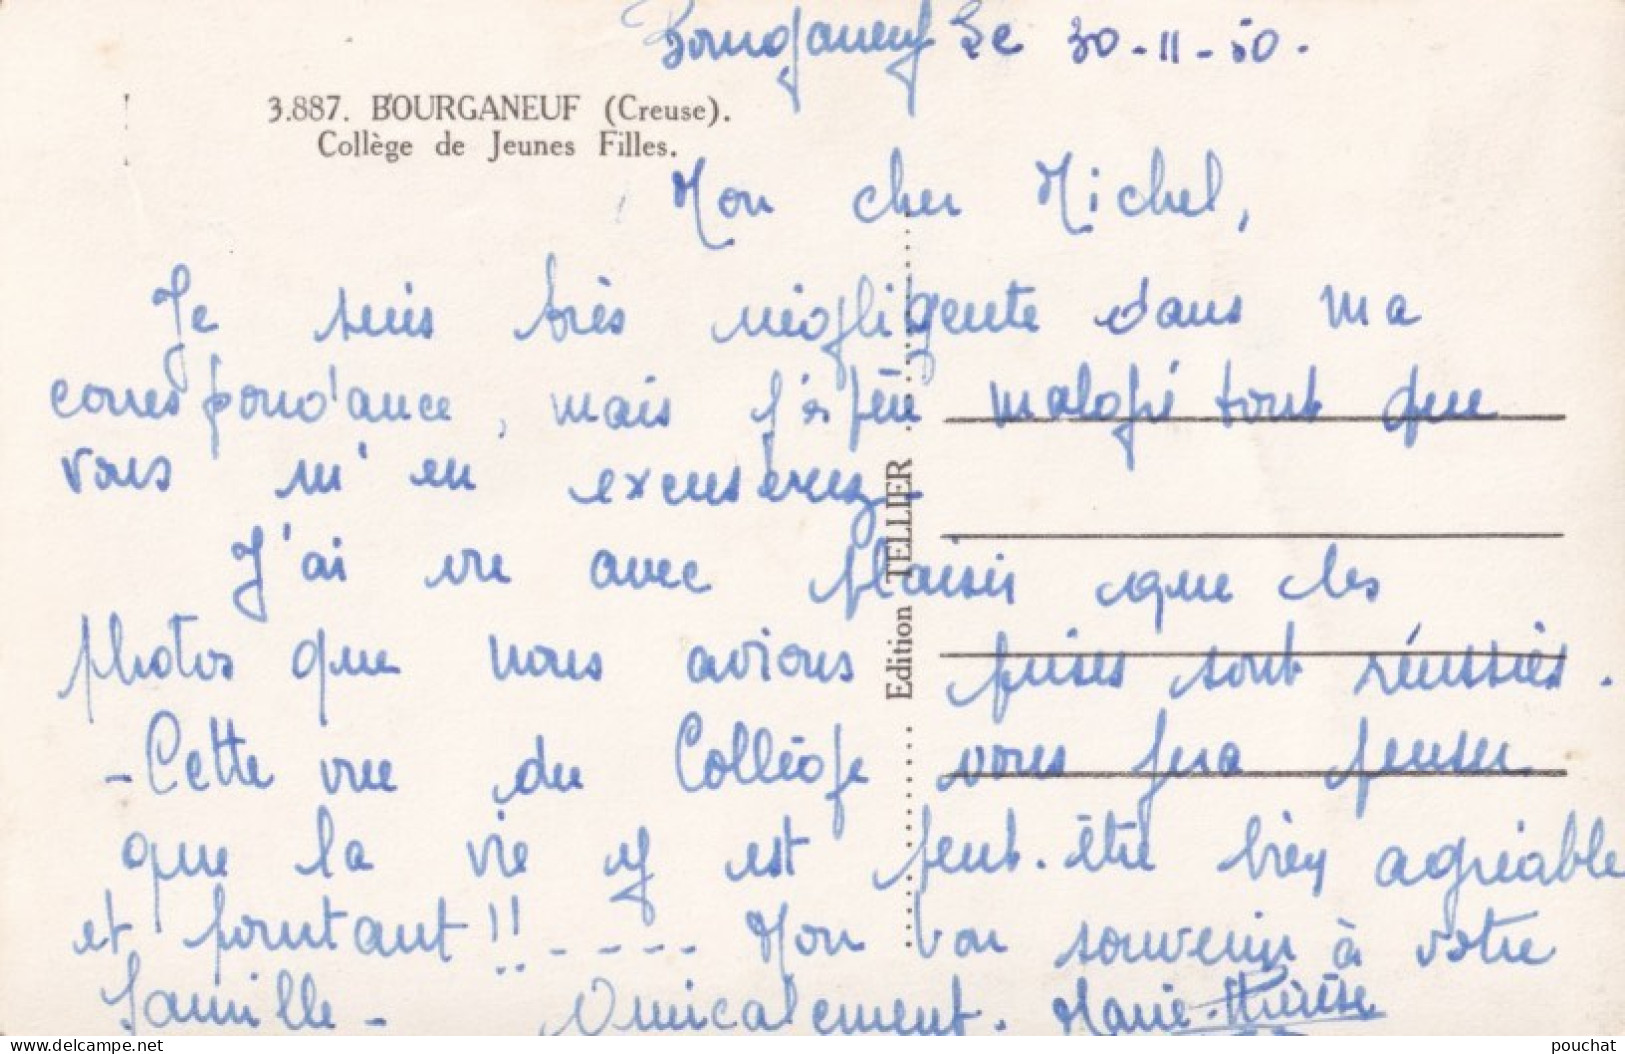 Bourganeuf Le 30-11-50.
3.887. BOURGANEUF (Creuse).
Collège de Jeunes Filles.
Mon cher Michel,
Je suis très négligente dans ma
correspondance, mais j'espèr malgré tout que
vous m'en excuserez.
J'ai vu avec plaisir que les
photos que nous avions prises sont réussies.
- Cette vue du Collège vous fera penser
que la vie y est peut-être bien agréable
et pourtant !! - - - - Mon bon souvenir à votre
famille - Amicalement. Marie-Thérèse
Edition TELLIER
pouchat